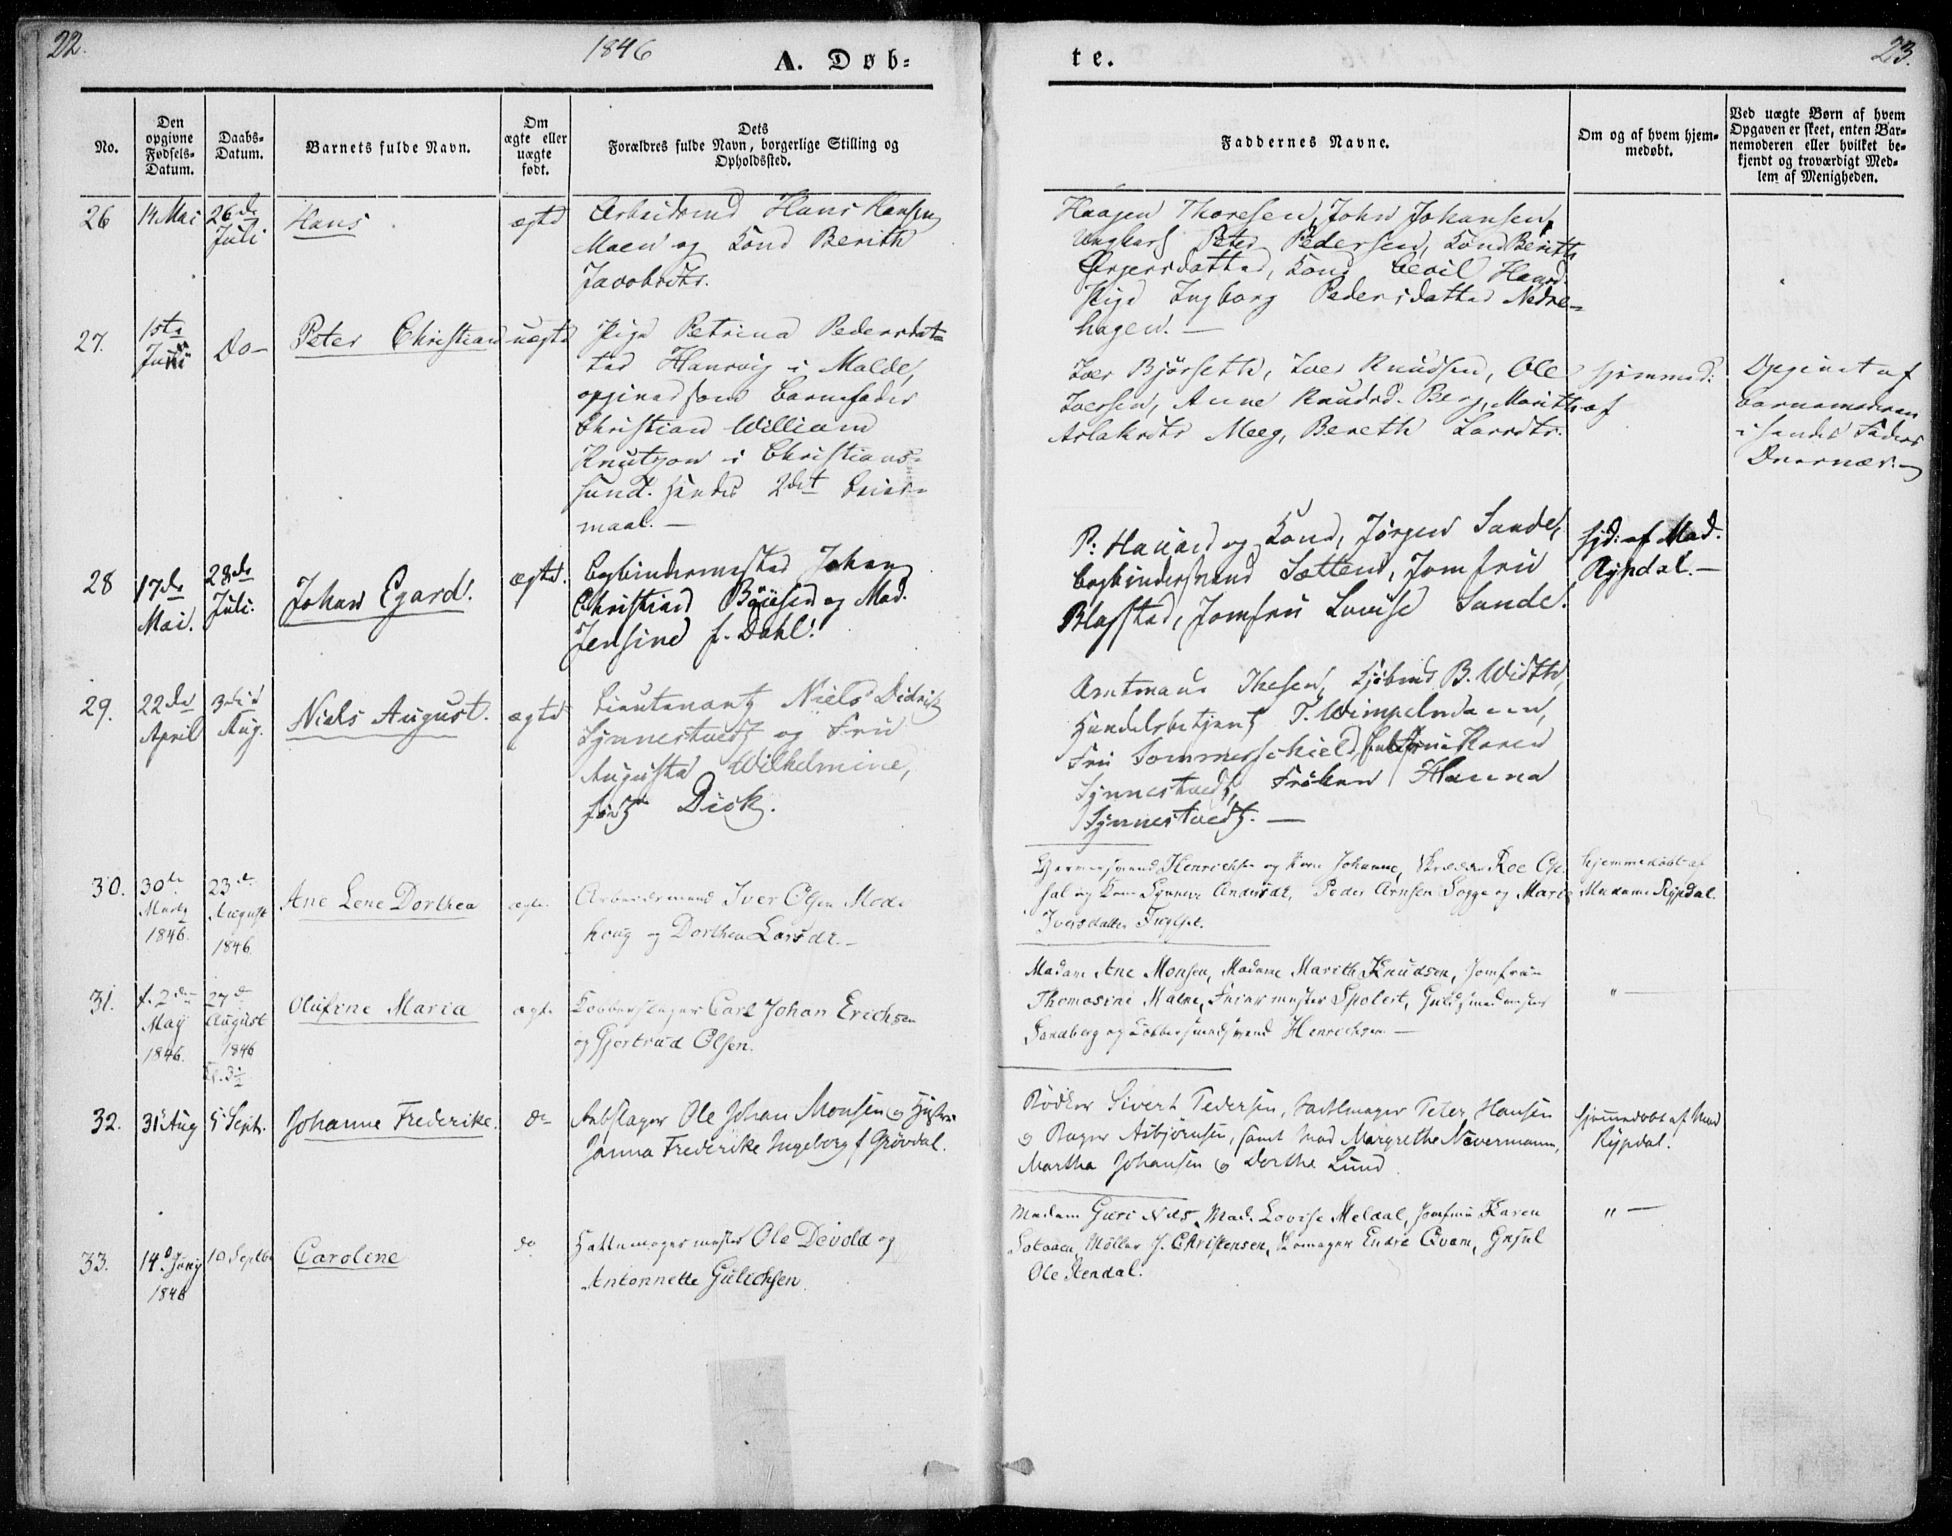 22.
1846
A. Døb-
te.
23.
No.
Den opgivne Fødsels-Datum.
Daabs-Datum.
Barnets fulde Navn.
Om ægte eller uægte født.
Dets
Forældres fulde Navn, borgerlige Stilling og
Opholdssted.
Faddernes Navne.
Om og af hvem hjem-
medøbt.
Ved uægte Børn af hvem
Opgaven er skeet, enten Bar-
nemoderen eller hvilket be-
kjendt og troværdigt Med-
lem af Menigheden.
26
14 Mai
26de
Juli
Hans
ægte
Arbeidsmd Hans Hansen
Moen og Kone Berith
Jacobsdtr.
Haagen Thoresen, John Johansen,
Ungkarl Peter Pedersen, Kone Berith
Kone Hans
Pige Ingborg Pedersdatter Nedre-
hagen. —
27.
1ste
Juni
Do —
Peter Christian
uægte
Pige Petrina Pedersdat-
ter Hamvig i Molde,
opgived som Barnefader
Christian William
Knutzon i Christians-
sund. Hendes 2det Leier-
maal. —
Iver Bjørseth, Iver Knudsen, Ole
Iversen, Anne Knudsd. Berg, Marith
Aslaksdtr Meeg, Bereth Larsdtr.
hjemmed:
af
Opgivet af
Barnemoderen
i hendes Faders
Nærvær. —
28
17de
Mai.
28de
Juli.
Johan Egard.
ægte.
Bogbindermester Johan
Christian Böysen og Mad.
Jensine f. Dahl.
P: Hanard og Kone, Jørgen Sande,
Bogbindersvend Sættem, Jomfru
Blafstad, Jomfru Lovise Sande.
hjd: af Mad.
Rypdal. —
29.
22de
April
3die
Aug.
Niels August.
ægte
Lieutenant Niels Didrik
Synnestvedt og Frue
Augusta Wilhelmine,
født Dick.
Amtmand Thesen, Kjøbmd B. Width,
Handelsbetjent T. Wimpelmann,
Fru Sommerschield, Karen
Synnestvedt, Frøken Hanna
Synnestvedt. —
30.
30te
Marty
1846.
23de
August
1846
Ane Lene Dorthea
ægte.
Arbeidsmand Iver Olsen Mode
houg og Dorthea Larsdr. —
Henrichsen og Kone Johanne, Roe
sal og Kone Synneve Andersdr, Peder Arnsen Sogge og Marie
Iversdatter Fugelset.
Hjemmedøbt af
Madame Rypdal.
31.
f. 2den
May
1846.
27de
August
1846
Kl. 3½
Olufine Maria
ægte
Kobberslager Carl Johan Erichsen
og Gjertrud Olsen.
Madam Ane Monsen, Madame Marith Knudsen, Jomfru
Thomasine Malne, mester Spolert, Guldsmedmester
Sandberg og Kobbersmedsvend Henrichsen —
" —
32.
31 Aug
5 Septr.
Johanne Frederike.
do
Rebslager Ole Johan Monsen og Hustru
Janna Frederike Ingeborg f Grøvdal.
Bödker Sivert Pedersen, Hattmager Peter Hansen
og Bager Asbjørnsen, samt Mad Margrethe Nevermann,
Martha Johansen og Dorthe Lund
hjemmedøbt af Mad
Rypdal.
33.
14de Juny
1846
10 Septbr
Caroline
do
Hattemagermester Ole Devold og
Antonnette Gülichsen
Madam Guri Nils, Mad. Lovise Meldal, Jomfru Karen
Solaaen, Møller J. Christensen, Skomager Endre Qvam, Gesel
Ole Stendal.
" —